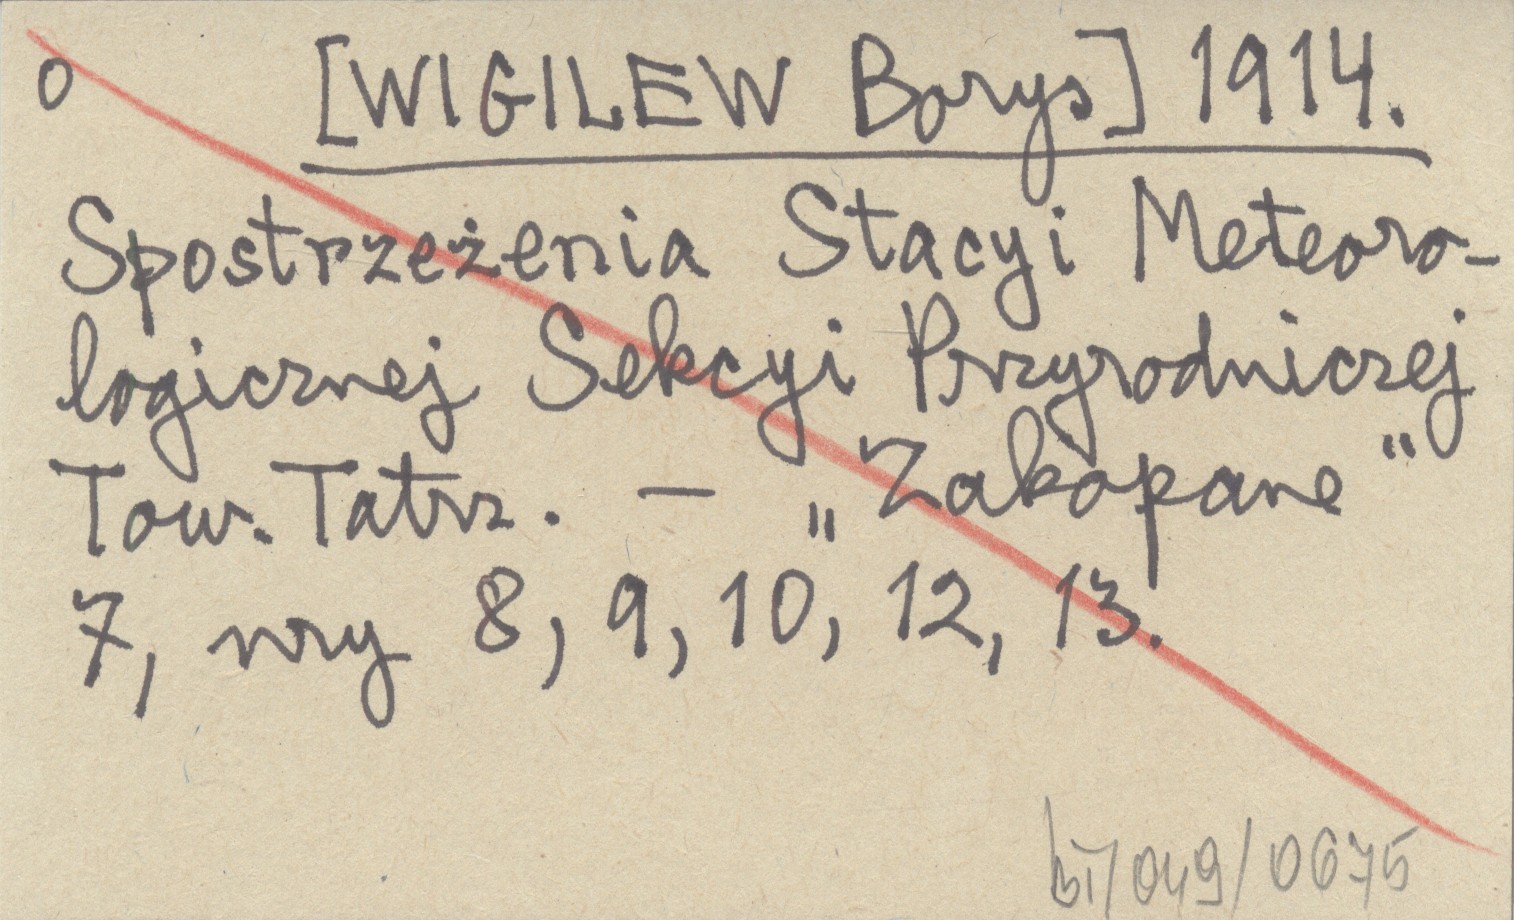 o [WIGILEW Borys] 1914.
Spostrzeżenia Stacyi Meteoro-
logicznej Sekcyi Przyrodniczej
Tow. Tatrz. – „Zakopane"
7, nry 8, 9, 10, 12, 13.
049/0675